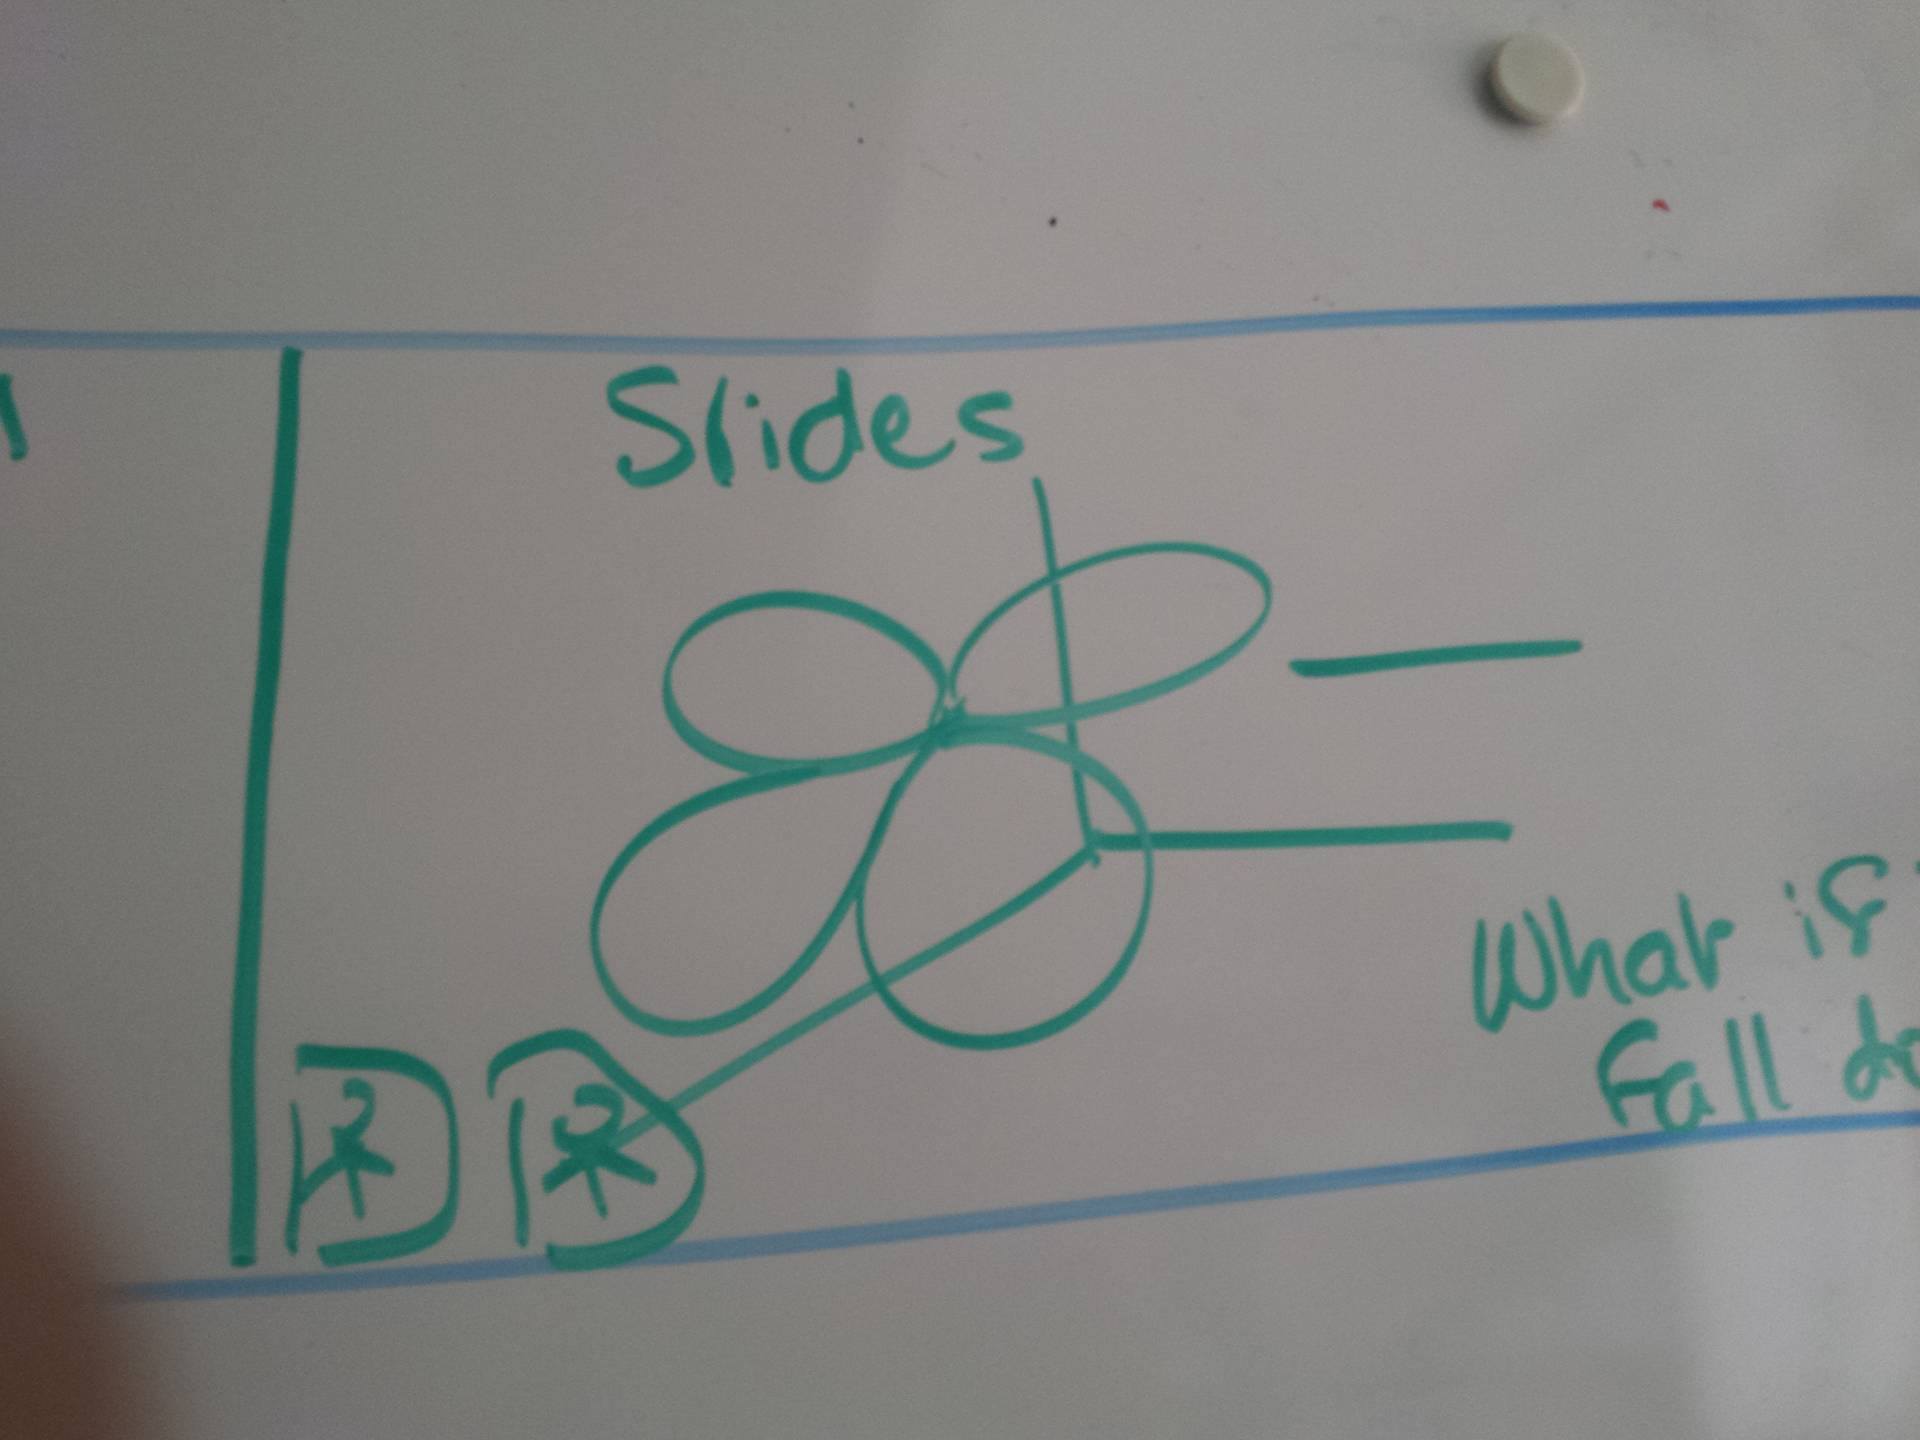 Slides
What if
fall do